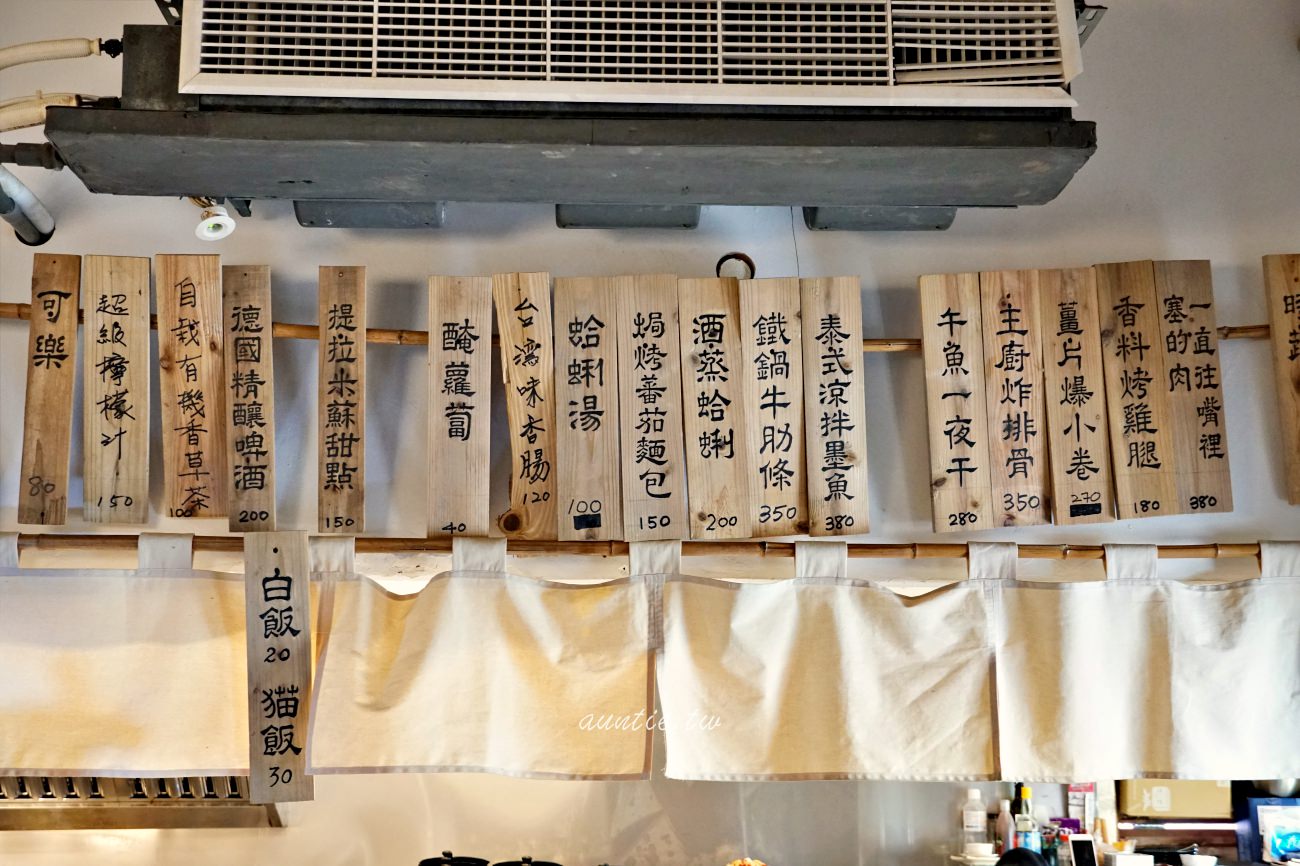 可樂 80
超級檸檬汁 150
自栽有機香草茶 100
德國精釀啤酒 200
提拉米蘇甜點 150
醃蘿蔔 40
台灣味香腸 120
蛤蜊湯 100
焗烤蕃茄麵包 150
酒蒸蛤蜊 200
鐵鍋牛肋條 350
泰式涼拌墨魚 380
午魚一夜干 280
主廚炸排骨 350
薑片爆小卷 270
香料烤雞腿 180
一直往嘴裡
塞的肉 380
白飯
20
猫飯
30
auntie.tw